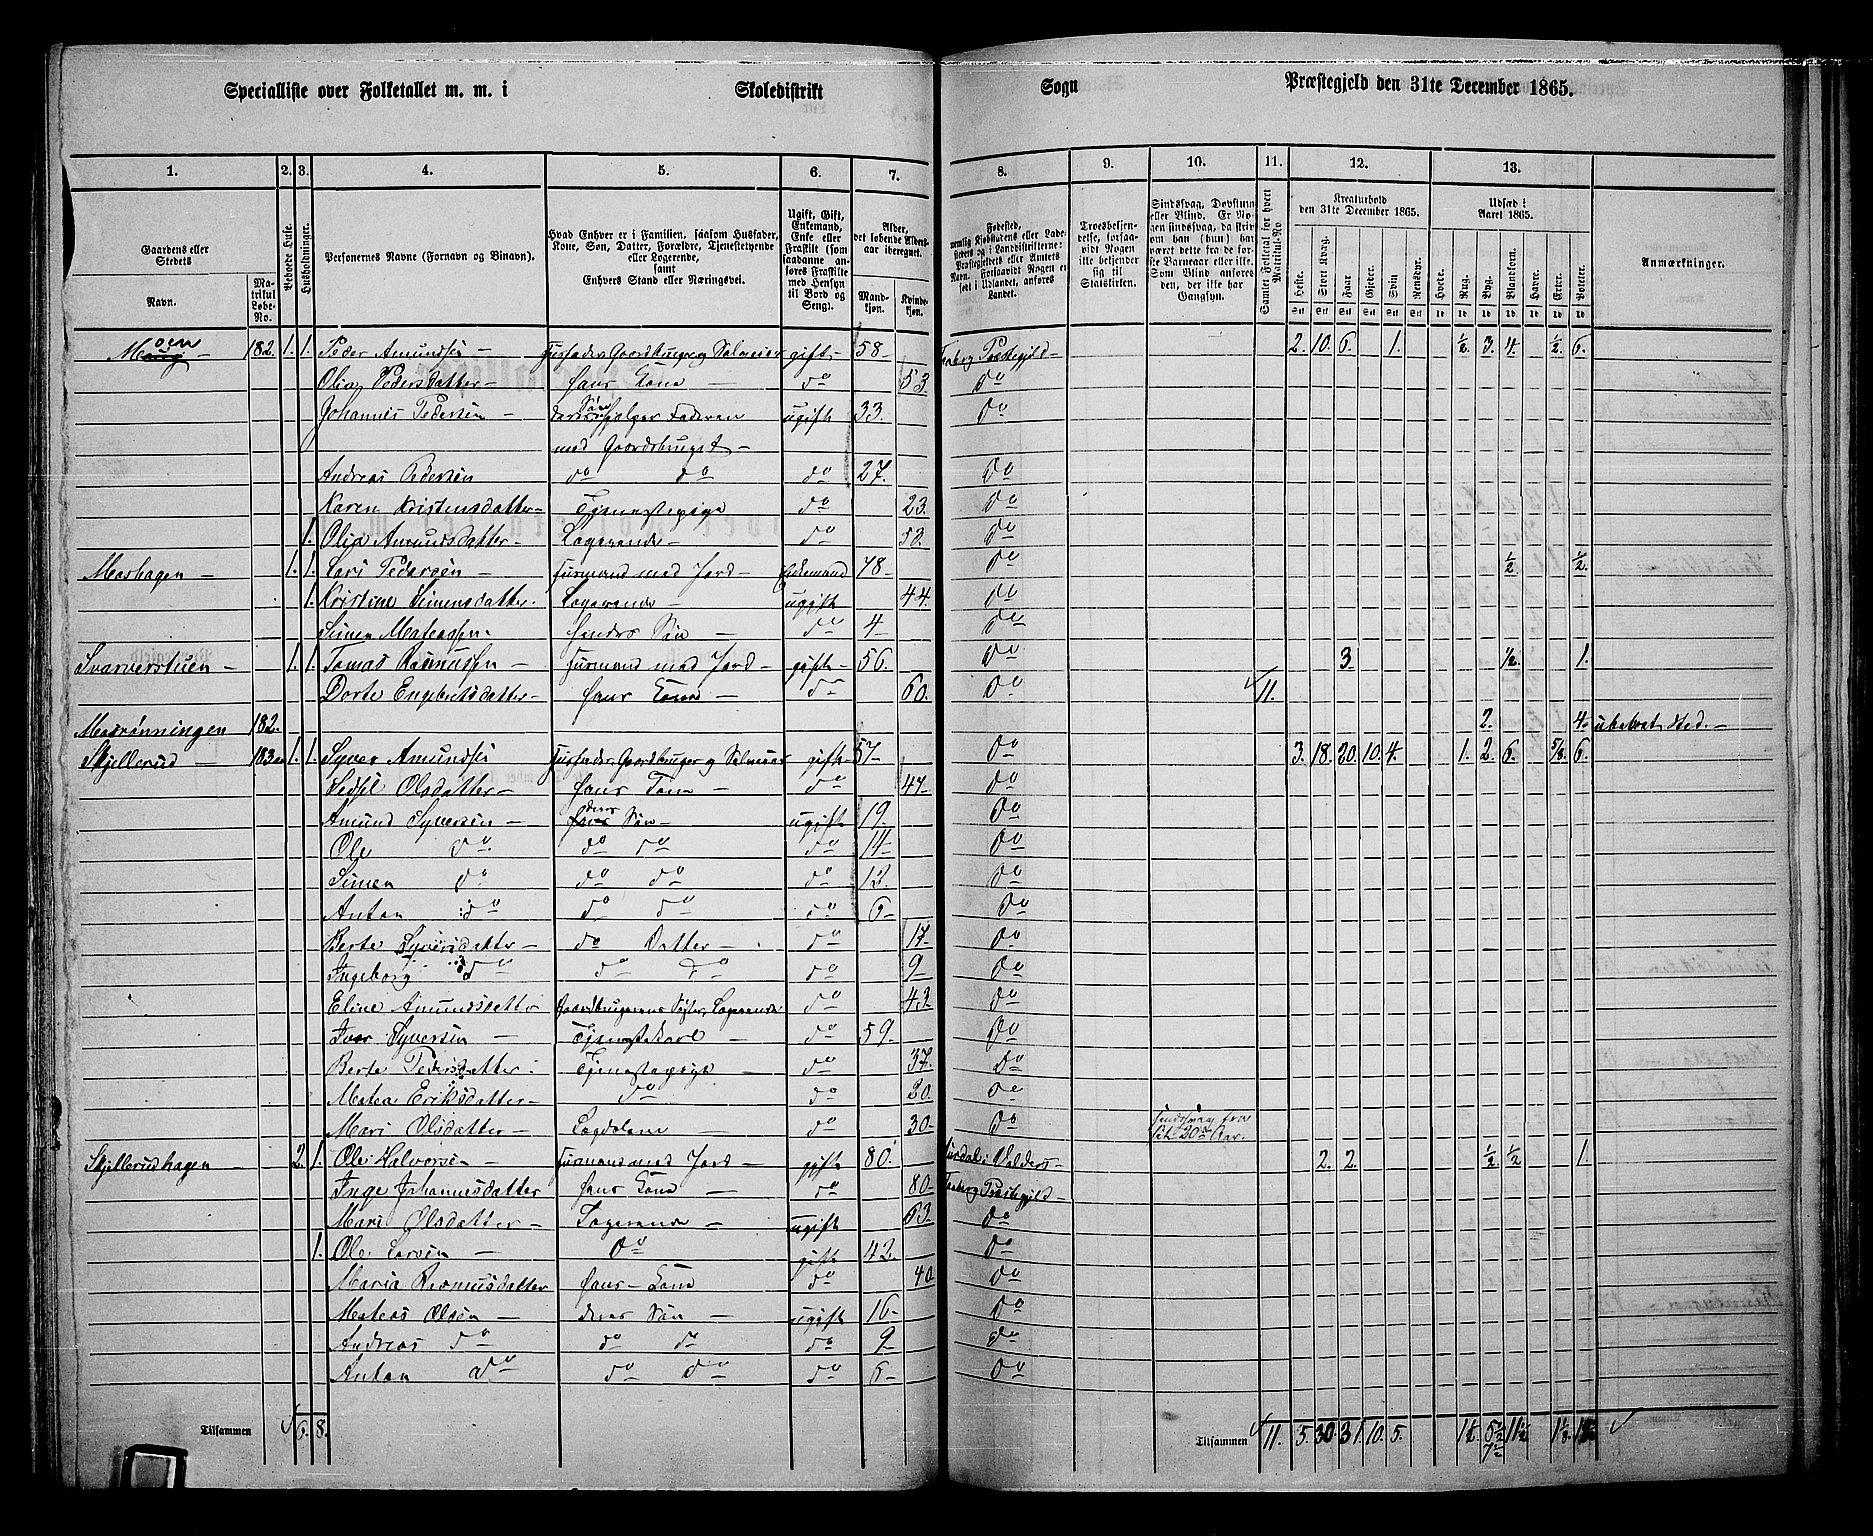 Specialliste over Folketallet m. m. i Skoledistrikt Sogn Præstegjeld den 31te December 1865.
1. 2. 3. 4. 5. 6. 7. 8. 9. 10. 11. 12. 13.
Gaardens eller Stedets
Navn.
Matrikul Løbe-No.
Beboede Huse.
Husholdninger.
Personernes Navne (Fornavn og Binavn).
Hvad Enhver er i Familien, saasom Husfader, Kone, Søn, Datter, Forældre, Tjenestetyende eller Logerende, samt Enhvers Stand eller Næringsvei.
Ugift, Gift, Enkemand, Enke eller Fraskilt (som saadanne anføres Fraskilte med Hensyn til Bord og Seng).
Alder, det løbende Alders-aar iberegnet.
Mandkjøn. Kvindekjøn.
Fødested,
Troesbekjendelse, forsaavidt Nogen ikke bekjender sig til Statskirken.
Sindssvag, Døvstum eller Blind. Er Nogen sindssvag, da skrives om han (hun) har været dette fra første Barneaar eller ikke. Som Blind anføres den, der ikke har Gangsyn.
Samlet Folketal for hvert Matrikul-No.
Kreaturhold den 31te December 1865.
Heste. Stort Kvæg. Faar. Gjeder. Sviin. Rensdyr.
Udsæd i Aaret 1865.
Hvede. Rug. Byg. Blandkorn. Havre. Erter. Poteter.
Anmærkninger.
Moen 182. 1. 1. Peder Amundsen Husfader, Gaardbruger og Selveier gift 58 Faaberg Præstegjeld 2. 10. 6. 1. ½ 3. 4. ½ 6.
Oliv Pedersdatter hans Kone do 53. do
Johannes Pedersen deres Søn hjelper Faderen ugift 33. do
med Gaardsbruget
Andreas Pedersen do do do 27. do
Karen Kristensdatter Tjenestepige do 23. do
1. Olia Amundsdatter Logerende do 52. do
Moshagen 1. 1. Lars Pedersen Huusmand med Jord Enkemand 78 do ½ ½
1. Kristine Simensdatter. Logerende ugift 44. do
Simen Mateasen. hendes Søn do 4 do
Svarverstuen 1. 1. Tomas Rasmussen Huusmand med Jord gift 56. do 3. ½ 1.
Dorte Engebretsdatter hans Kone do 60. do 11.
Mosrønningen 182. 2. 4. ubeboet Sted.
Skjellerud 183 1. 1. Syver Amundsen Husfader, Gaardbruger og Selveier gift 57. do 3. 18. 20. 10. 4. 1. 2. 6. 5/8 6.
Sedsel Olsdatter hans Kone do 47 do
Amund Syversen deres Søn ugift 19. do
Ole do do do do 14 do
Simen do do do do 12. do
Anton do do do do 6 do
Berte Syversdatter do Datter do 17 do
Ingeborg do do do do 9 do
Eline Amundsdatter Gaardbrugerens Søster, Logerende do 43 do
Iver Syversen Tjenestekarl do 59. do
Berte Pedersdatter Tjenestepige do 37. do
Matea Eriksdatter do do 20. do
Mari Olsdatter Lægdslem do 30. do Sindssvag fra sit 20de Aar.
Skjellerudhagen 2. 1. Ole Halvorsen Huusmand med Jord gift 80. Aurdal i Valders 2. 2. ½ ½ 1.
Inge Johannesdatter hans Kone do 80 Faaberg Præstegjeld
Mari Olsdatter Logerende ugift 63. do
1. Ole Larsen do gift 42. do
Maria Rasmusdatter hans Kone do 40 do
Mateas Olsen deres Søn ugift 16 do
Andreas do do do do 9 do
Anton do do do do 6 do
Tilsammen 6. 8. Tilsammen 11. 5. 30. 31. 10. 5. 1½ 5½ 7½ 11½ 1⅛